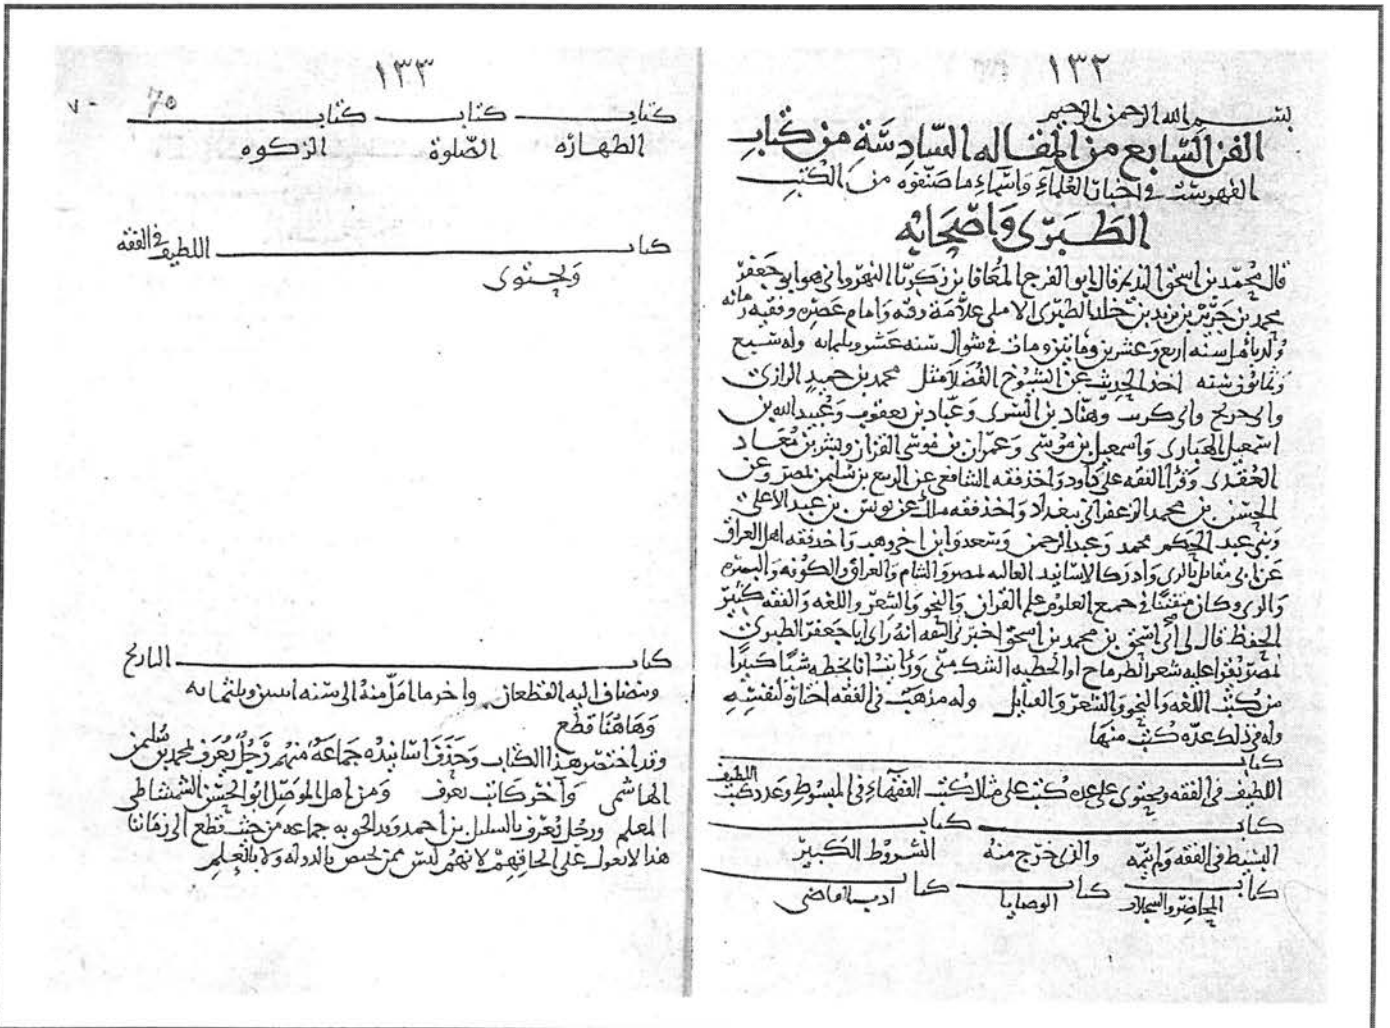 ١٣٢
بسم الله الرحمن الرحيم
الفن السابع من المقاله السادسة من كتاب
الفهرست في اخبار العلماء واسماء ما صنفوه من الكتب
الطبري واصحابه
قال محمد بن اسحق النديم قال ابو الفرج المعافا بن زكريا النهرواني هو ابو جعفر
محمد بن جرير بن يزيد بن خالد الطبري الاملي علامة وقته وامام عصره وفقيه زمانه
ولد بامل سنه اربع وعشرين ومائتين ومات في شوال سنه عشر وثلثمائه وله سبع
وثمانون سنه اخذ الحديث عن الشيوخ الفضلا مثل محمد بن حميد الرازي
وابي جريج وابي كريب وهناد بن السري وعباد بن يعقوب وعبيد الله بن
اسمعيل الهباري واسمعيل بن موسى وعمران بن موسى القزاز وبشر بن معاد
العقدي وقرأ الفقه على داود واخذ فقه الشافعي عن الربيع بن سليمن بمصر وعن
الحسن بن محمد الزعفراني ببغداد واخذ فقه مالك عن يونس بن عبد الاعلى
وبني عبد الحكم محمد وعبد الرحمن وسعد وابن اخي وهب واخذ فقه اهل العراق
عن ابي مقاتل بالري وادرك الاسانيد العاليه بمصر والشام والعراق والكوفه والبصره
والري وكان متفننا في جميع العلوم علم القران والنحو والشعر واللغه والفقه كثير
الحفظ قال لي ابي اسحق بن محمد بن اسحق اخبرني الثقه انه راى ابا جعفر الطبري
بمصر يقرا عليه شعر الطرماح او الحطيه الشك مني ورايت انا بخطه شيا كثيرا
من كتب اللغه والنحو والشعر والقبايل وله مذهب في الفقه اختاره لنفسه
وله في ذلك عده كتب منها
كتاب
اللطيف في الفقه ويحتوي على عدة كتب على مثال كتب الفقهاء في المبسوط وعدد كتب اللطيف
كتاب كتاب
البسيط في الفقه ولم يتمه والذي خرج منه الشروط الكبير
كتاب كتاب كتاب
المحاضر والسجلات الوصايا ادب القاضي
١٣٣
٧٠
كتاب كتاب كتاب
الطهاره الصلوة الزكوه
كتاب اللطيف في الفقه
ويحتوي
كتاب التاريخ
ويضاف اليه القطعان واخر ما امل منه الى سنه اثنين وثلثمائه
وهاهنا قطع
وقد اختصر هذا الكتاب وحذف اسانيده جماعة منهم رجل يعرف بمحمد بن سليمن
الهاشمي وآخر كاتب يعرف ومن اهل الموصل ابو الحسن الشمشاطي
المعلم ورجل يعرف بالسليل بن احمد وقد الحق به جماعه من حيث قطع الى زماننا
هذا لا يعول على الحاقهم لانهم ليس ممن يختص بالدوله ولا بالعلم